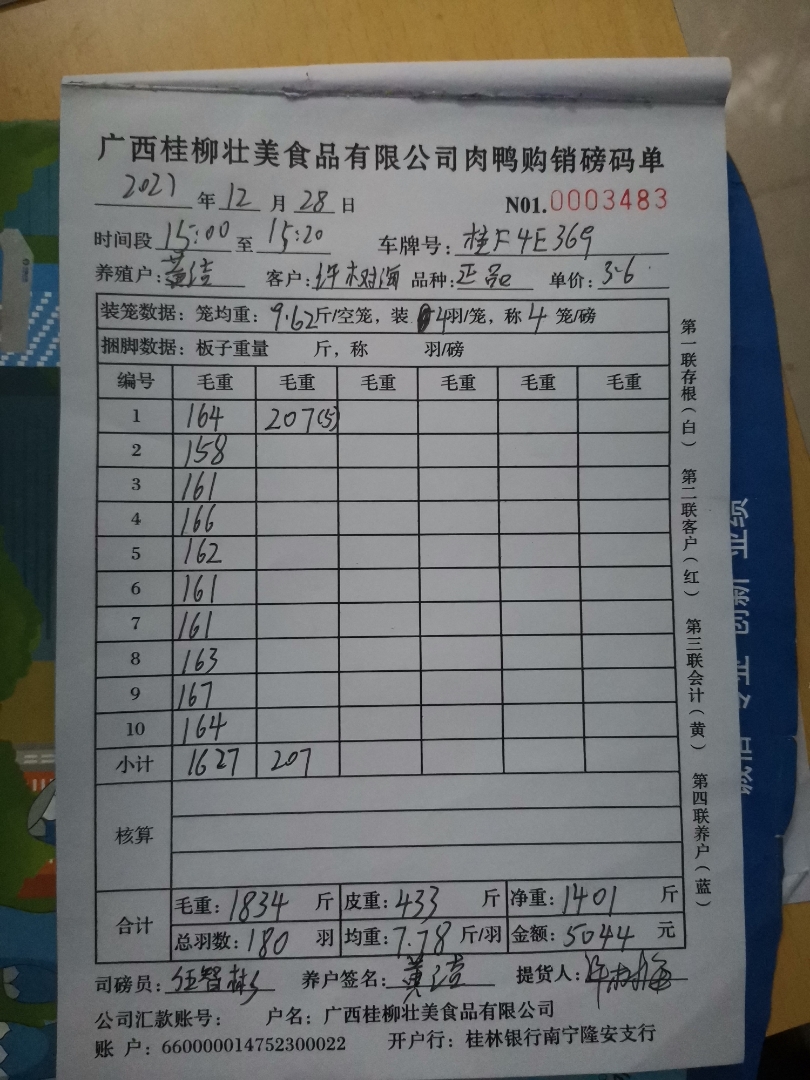 广西桂柳壮美食品有限公司肉鸭购销磅码单
2021年12月28日 N01.0003483
时间段15:00至15:20 车牌号:桂F4E369
养殖户:黄洁 客户:许树海 品种:正品 单价:3.6
装笼数据:笼均重:9.62斤/空笼,装4羽/笼,称4笼/磅
捆脚数据:板子重量 斤,称 羽/磅
编号 毛重 毛重 毛重 毛重 毛重 毛重
1 164 207(5)
2 158
3 161
4 166
5 162
6 161
7 161
8 163
9 167
10 164
小计 1627 207
核算
合计 毛重:1834斤 皮重:433斤 净重:1401斤
总羽数:180羽 均重:7.78斤/羽 金额:5044元
司磅员:伍智彬 养户签名:黄洁 提货人:许树海
公司汇款账号: 户名:广西桂柳壮美食品有限公司
账 户:660000014752300022 开户行:桂林银行南宁隆安支行
第一联存根(白) 第二联客户(红) 第三联会计(黄) 第四联养户(蓝)